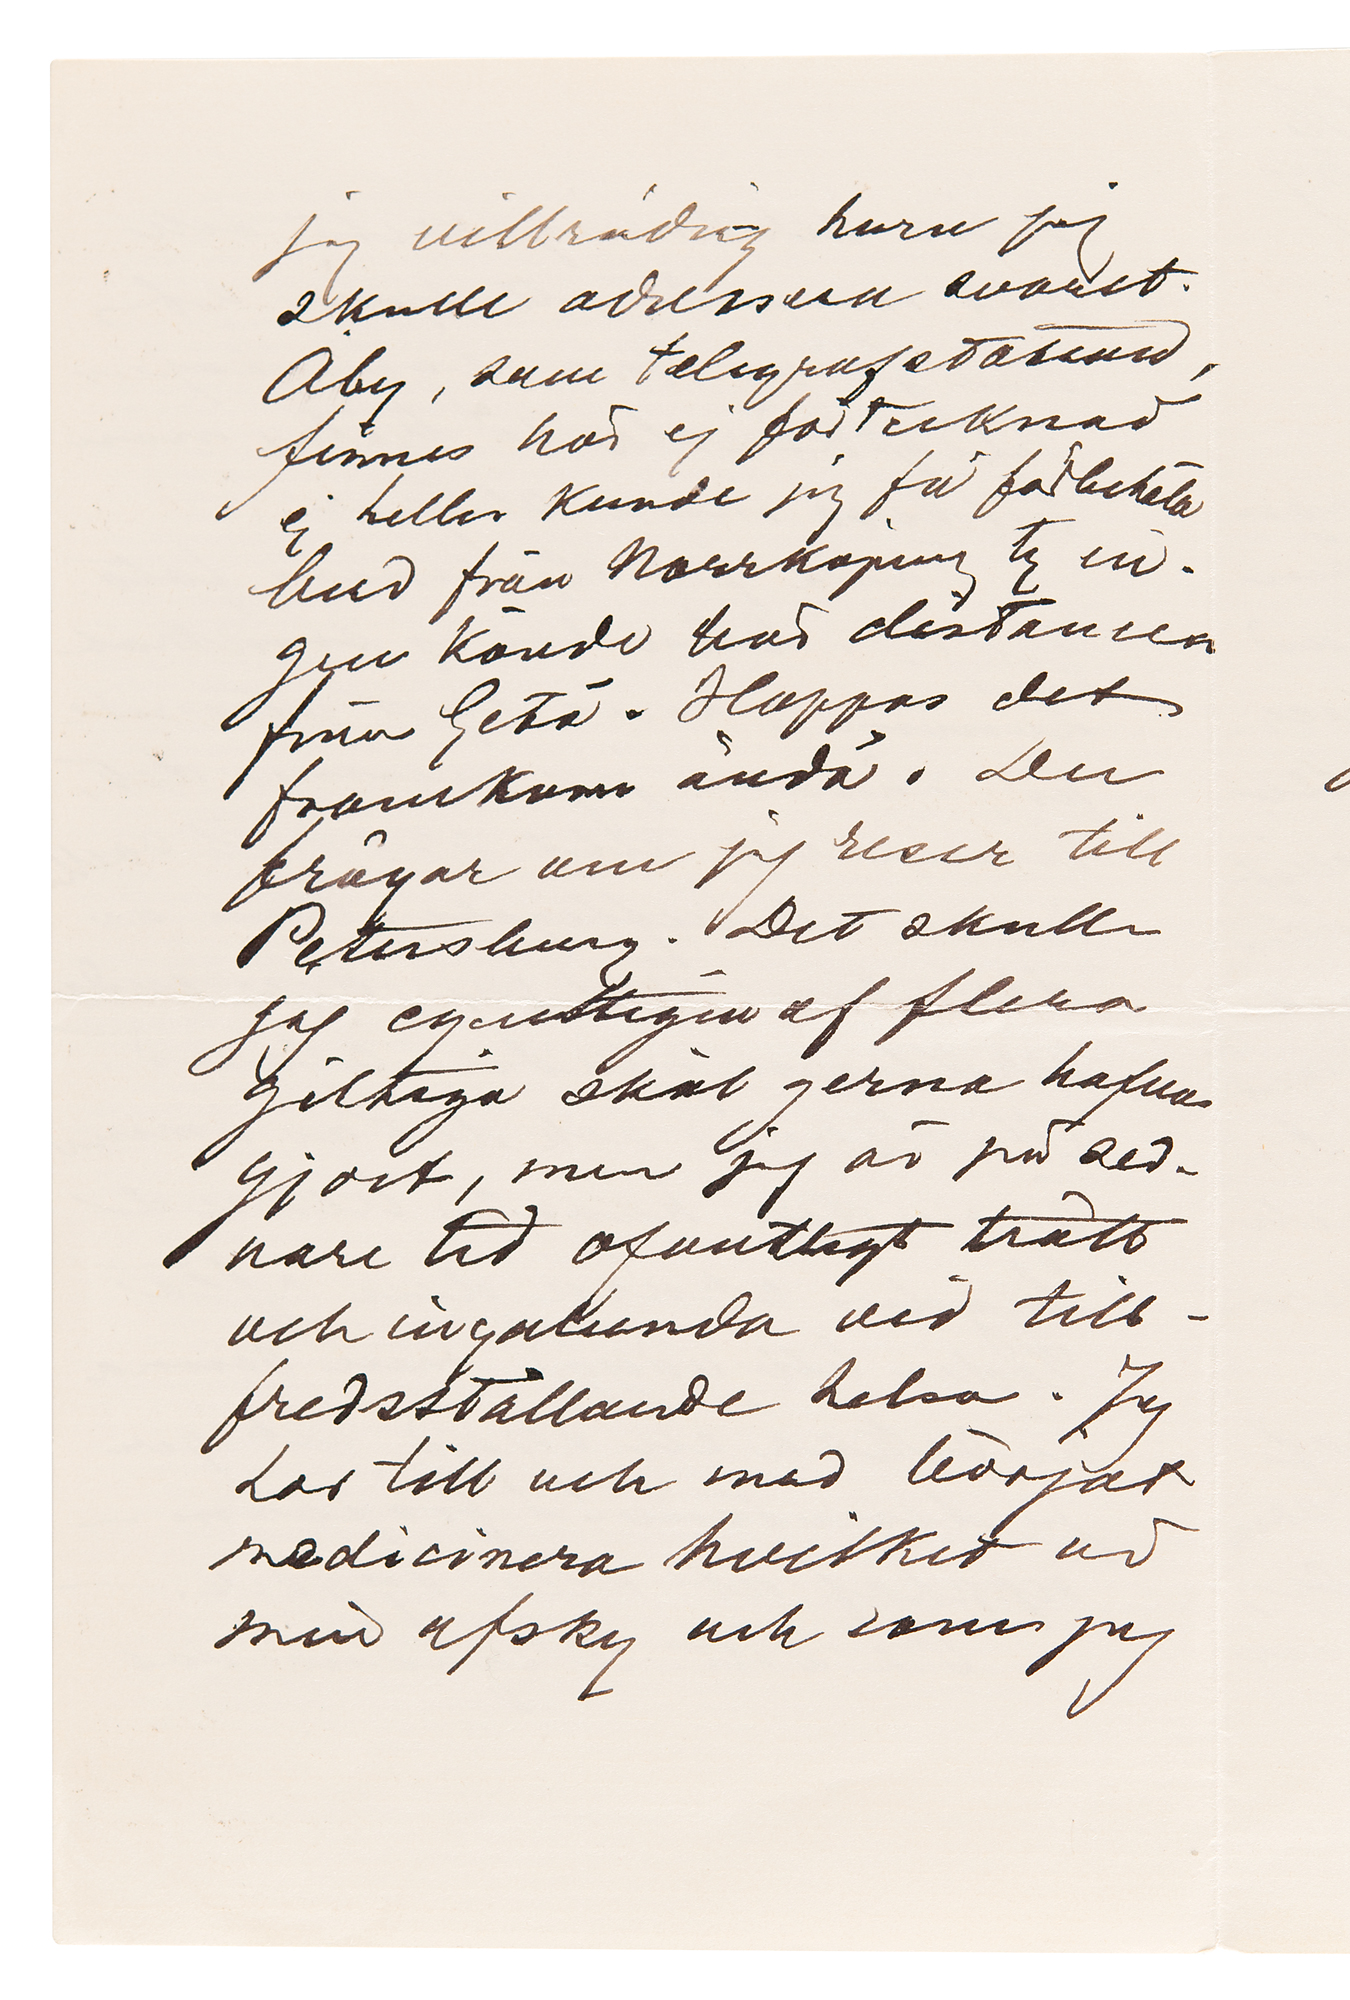 jag villrådig huru jag
skulle adressera svaret.
Åby, som telegrafstation,
finnes här ej förtecknad
ej heller kunde jag få förbetala
bud från Norrköping ty in-
gen kände här distansen
från Getå. Hoppas det
framkom ändå. Du
frågar om jag reser till
Petersburg. Det skulle
jag egentligen af flera
giltiga skäl gerna hafva
gjort, men jag är på sed-
nare tid ofantligt trött
och ingalunda vid till-
fredsställande helsa. Jag
har till och med börjat
medicinera hvilket är
min afsky och som jag